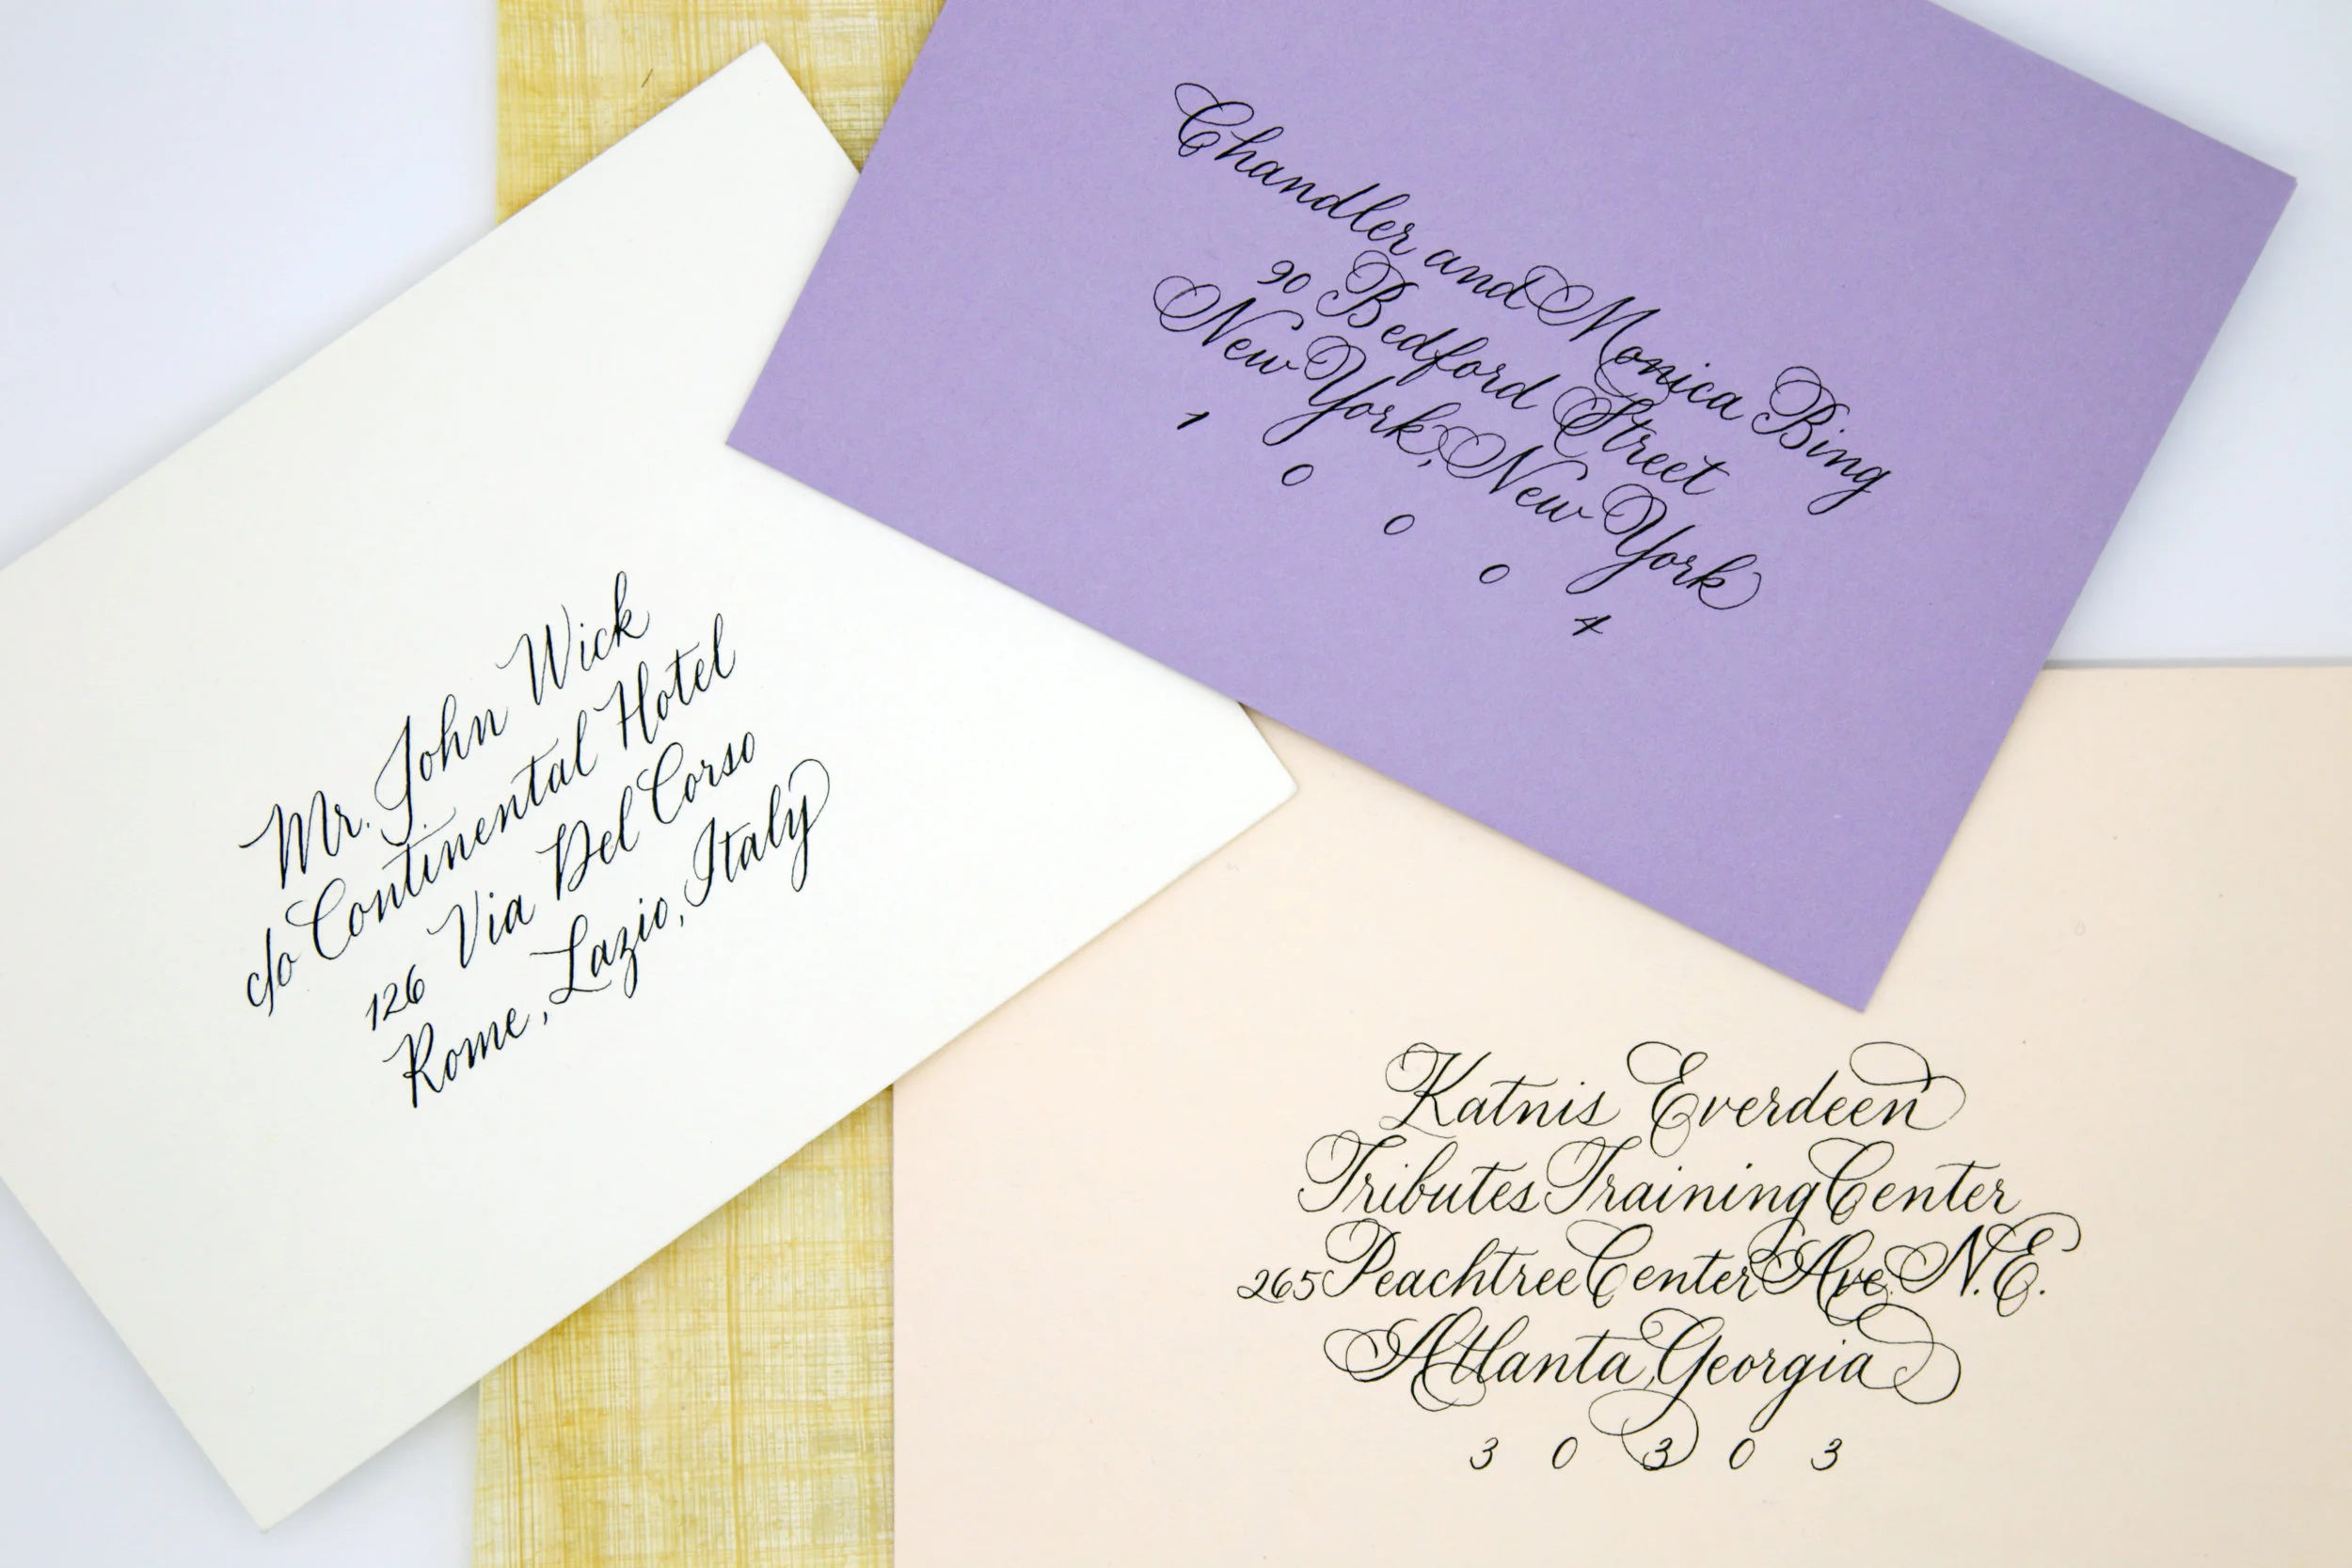 Chandler and Monica Bing
90 Bedford Street
New York, New York
1 0 0 0 4
Mr. John Wick
c/o Continental Hotel
126 Via Del Corso
Rome, Lazio, Italy
Katnis Everdeen
Tributes Training Center
265 Peachtree Center Ave. N.E.
Atlanta, Georgia
3 0 3 0 3